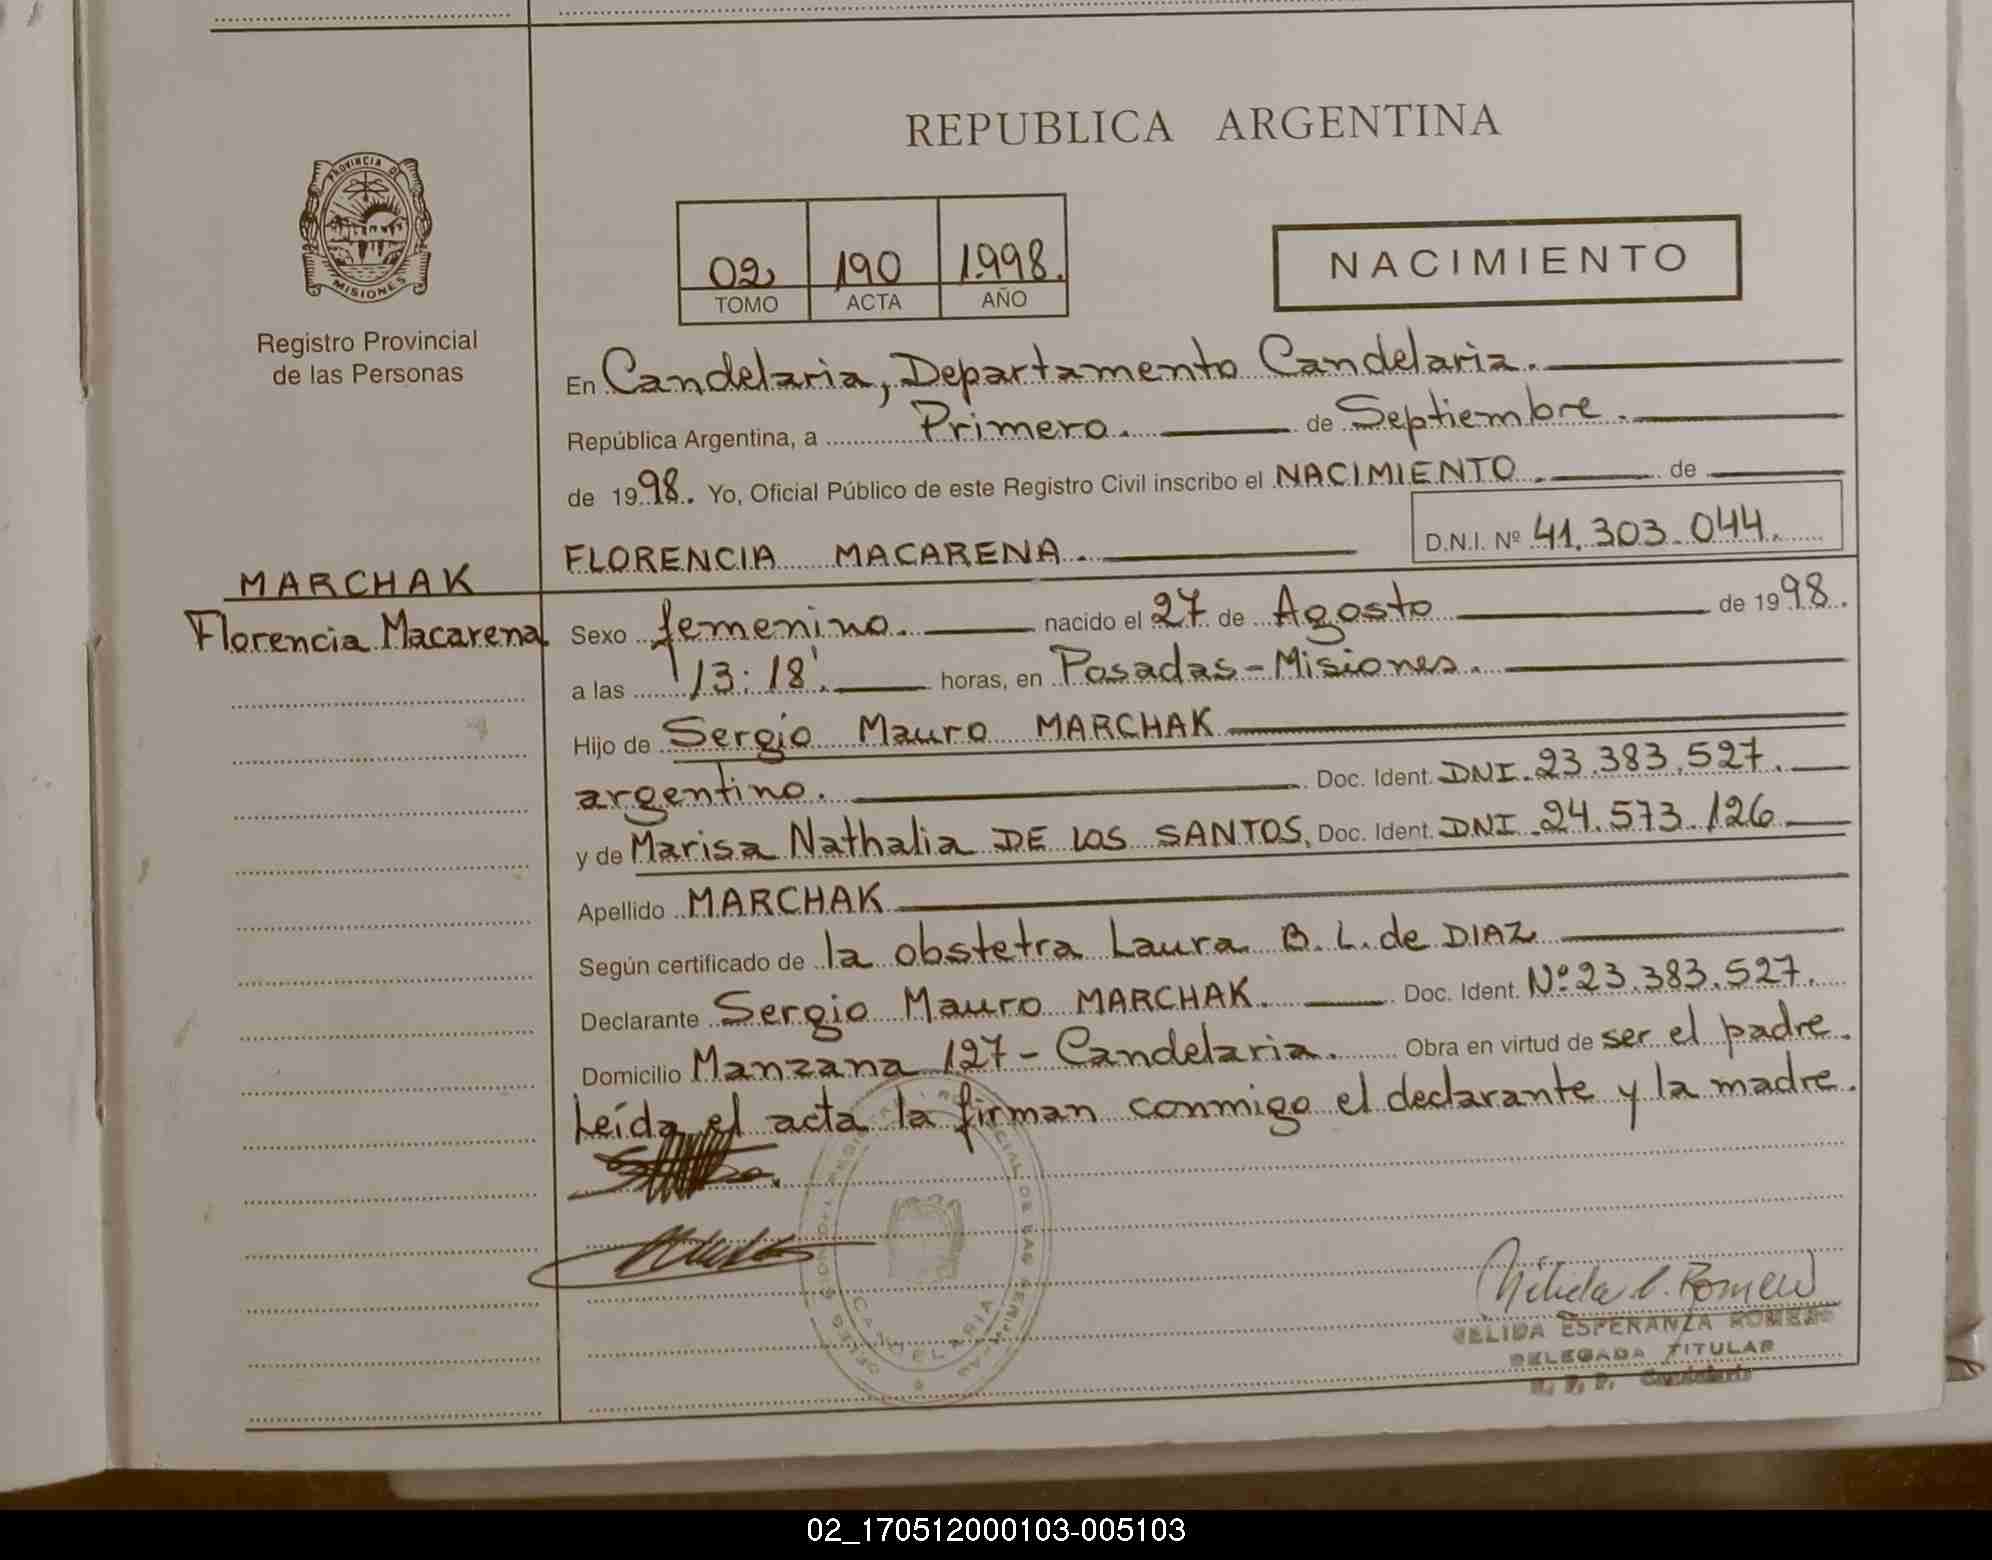 REPUBLICA ARGENTINA
PROVINCIA DE
MISIONES
Registro Provincial
de las Personas
02 190 1998.
TOMO ACTA AÑO
NACIMIENTO
En Candelaria, Departamento Candelaria.
República Argentina, a Primero. de Septiembre.
de 1998. Yo, Oficial Público de este Registro Civil inscribo el NACIMIENTO. de
FLORENCIA MACARENA. D.N.I. Nº 41.303.044.
MARCHAK
Florencia Macarena
Sexo femenino. nacido el 27 de Agosto de 1998.
a las 13:18'. horas, en Posadas-Misiones.
Hijo de Sergio Mauro MARCHAK
argentino. Doc. Ident. DNI. 23.383.527.
y de Marisa Nathalia DE LOS SANTOS, Doc. Ident. DNI. 24.573.126
Apellido MARCHAK
Según certificado de la obstetra Laura B. L. de DIAZ
Declarante Sergio Mauro MARCHAK. Doc. Ident. Nº 23.383.527.
Domicilio Manzana 127 - Candelaria. Obra en virtud de ser el padre.
Leída el acta la firman conmigo el declarante y la madre.
CANDELARIA
NELIDA ESPERANZA ROMERO
DELEGADA TITULAR
02_170512000103-005103